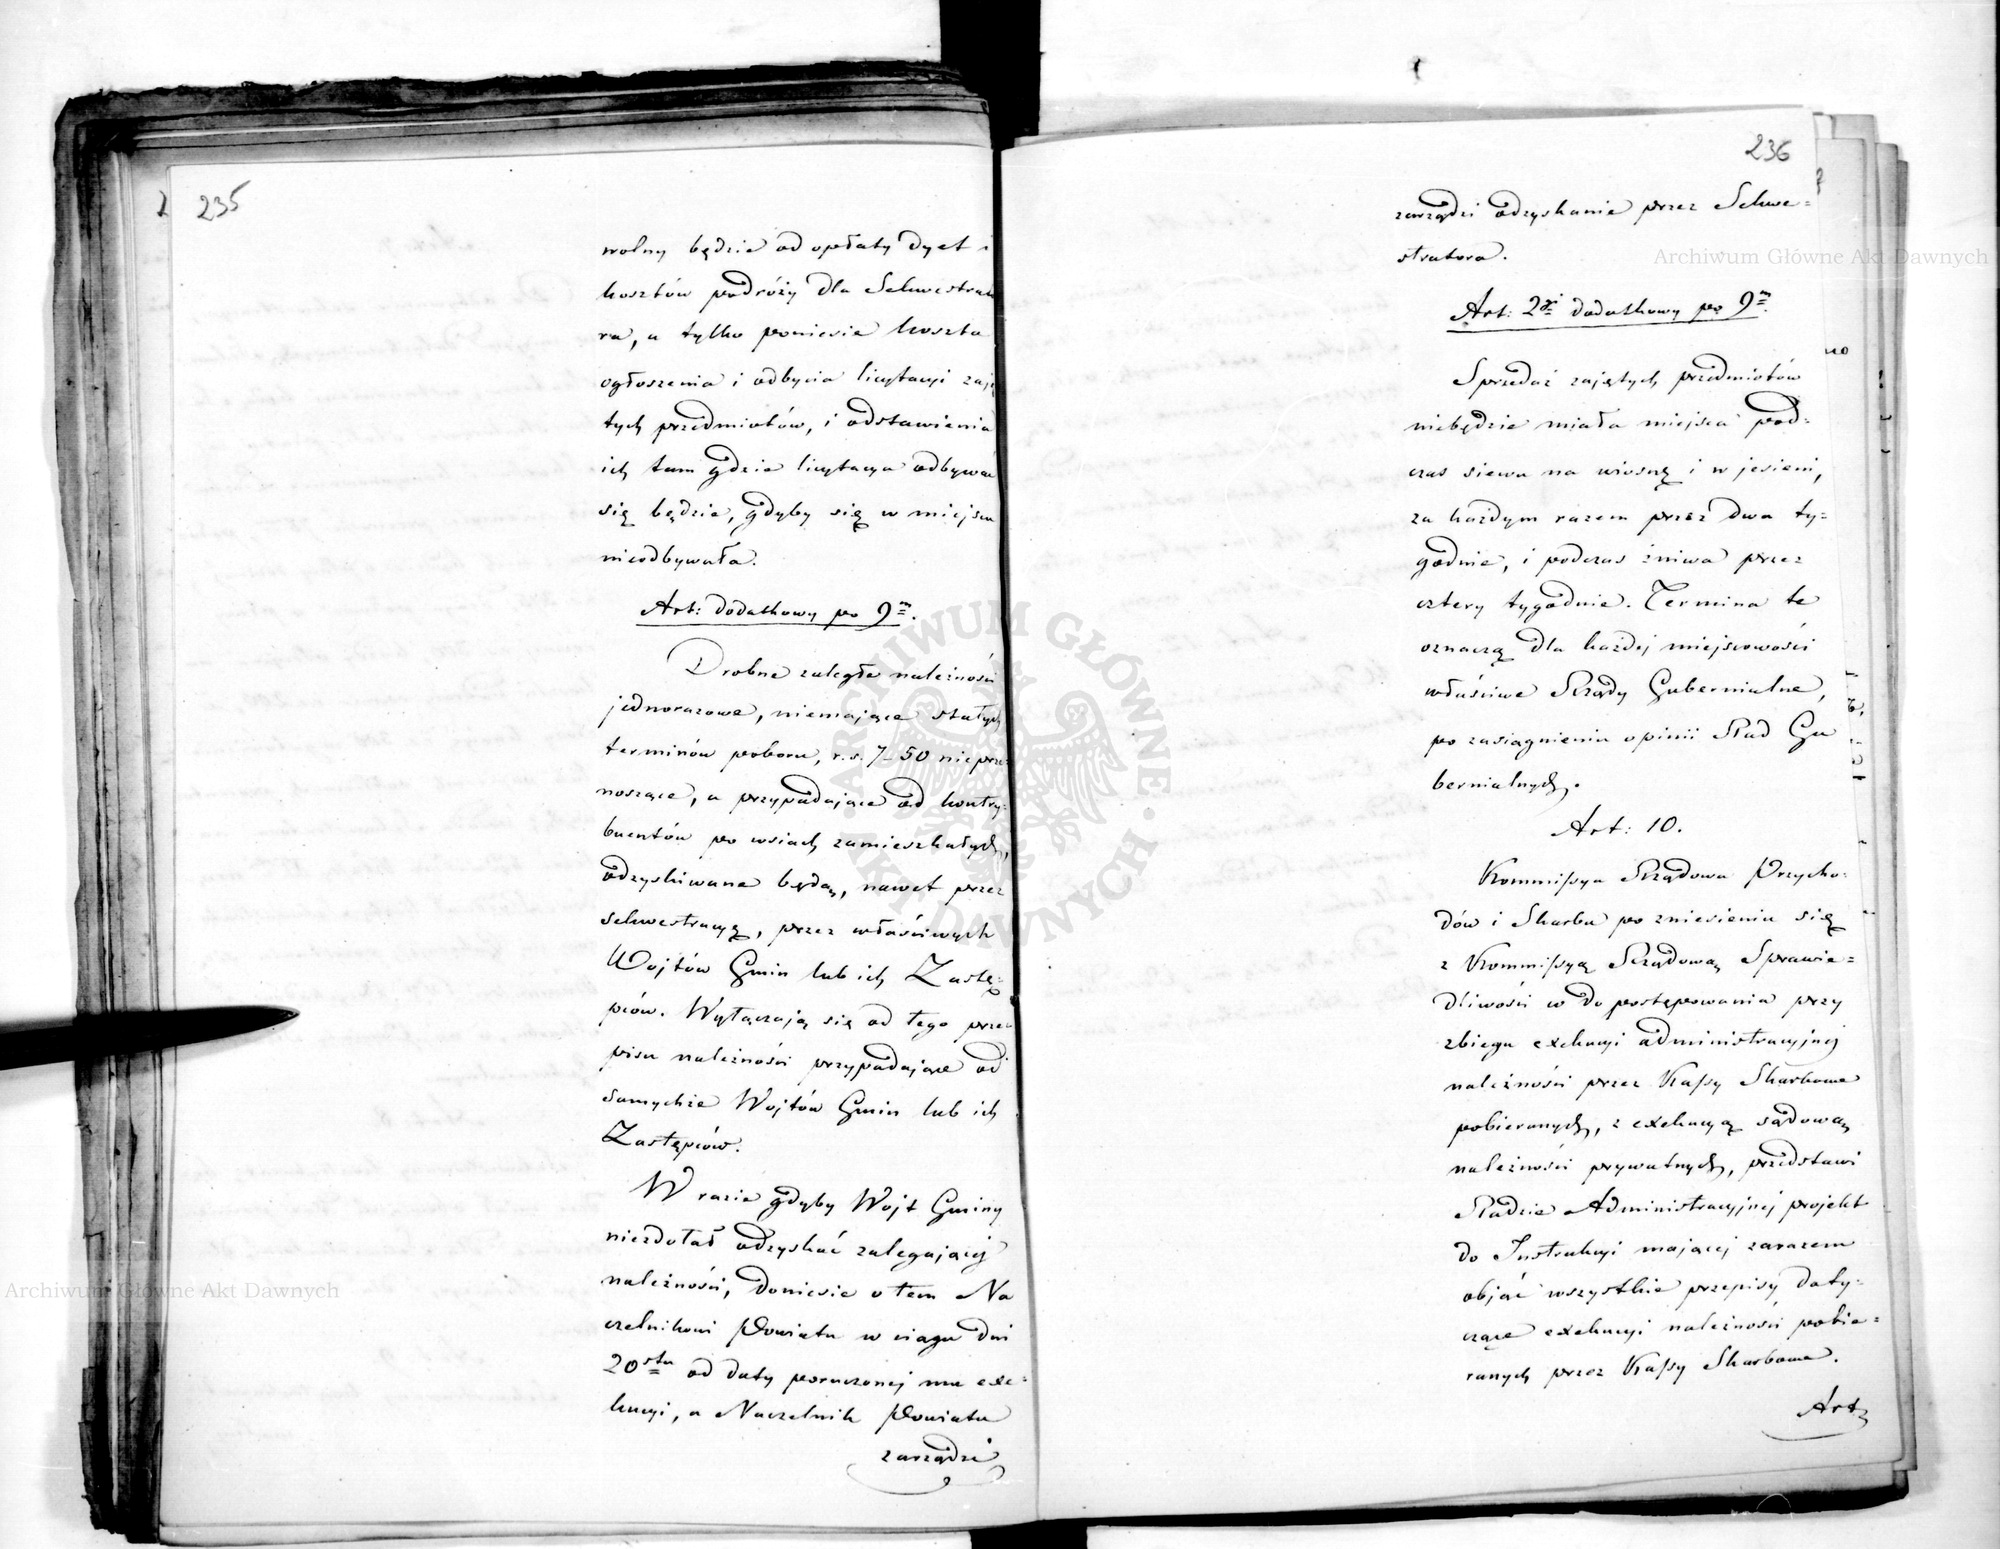 235
wolny będzie od opłaty dyet i
kosztów podróży dla Sekwestrato
ra, a tylko poniesie koszta
ogłoszenia i odbycia licytacyi zaję
tych przedmiotów, i odstawienia
ich tam gdzie licytacya odbywać
się będzie, gdyby się w miejscu
nieodbywała.
Art: dodatkowy po 9m.
Drobne zaległe należności
jednorazowe, niemające stałych
terminów poboru, r.s. 7-50 nieprze-
noszące, a przypadające od kontry-
buentów po wsiach zamieszkałych,
odzyskiwane będą, nawet przez
sekwestracyą, przez właściwych
Wojtów Gmin lub ich Zastę-
pców. Wyłączają się od tego prze
pisu należności przypadające od
samychże Wojtów Gmin lub ich
Zastępców.
W razie gdyby Wojt Gminy
niezdołał odzyskać zalegającej
należności, doniesie o tem Na
czelnikowi Powiatu w ciągu dni
20stu od daty poruczonej mu exe-
kucyi, a Naczelnik Powiatu
zarządzi
236
zarządzi odzyskanie przez Sekwe=
stratora.
Art: 2gi dodatkowy po 9m.
Sprzedaż zajętych przedmiotów
niebędzie miała miejsca pod-
czas siewu na wiosnę i w jesieni,
za każdym razem przez dwa ty=
godnie, i podczas żniwa przez
cztery tygodnie. Termina te
oznaczą dla każdej miejscowości
właściwe Rządy Gubernialne,
po zasiągnieniu opinii Rad Gu
bernialnych.
Art: 10.
Kommissya Rządowa Przycho-
dów i Skarbu po zniesieniu się
z Kommissyą Rządową Sprawie=
dliwości w do postępowania przy
zbiegu exekucyi administracyjnej
należności przez Kassy Skarbowe
pobieranych, z exekucyą sądową
należności prywatnych, przedstawi
Radzie Administracyjnej projekt
do Instrukcyi mającej zarazem
objąć wszystkie przepisy doty-
czące exekucyi należności pobie=
ranych przez Kassy Skarbowe.
Art
Archiwum Główne Akt Dawnych
Archiwum Główne Akt Dawnych
ARCHIWUM GŁÓWNE AKT DAWNYCH